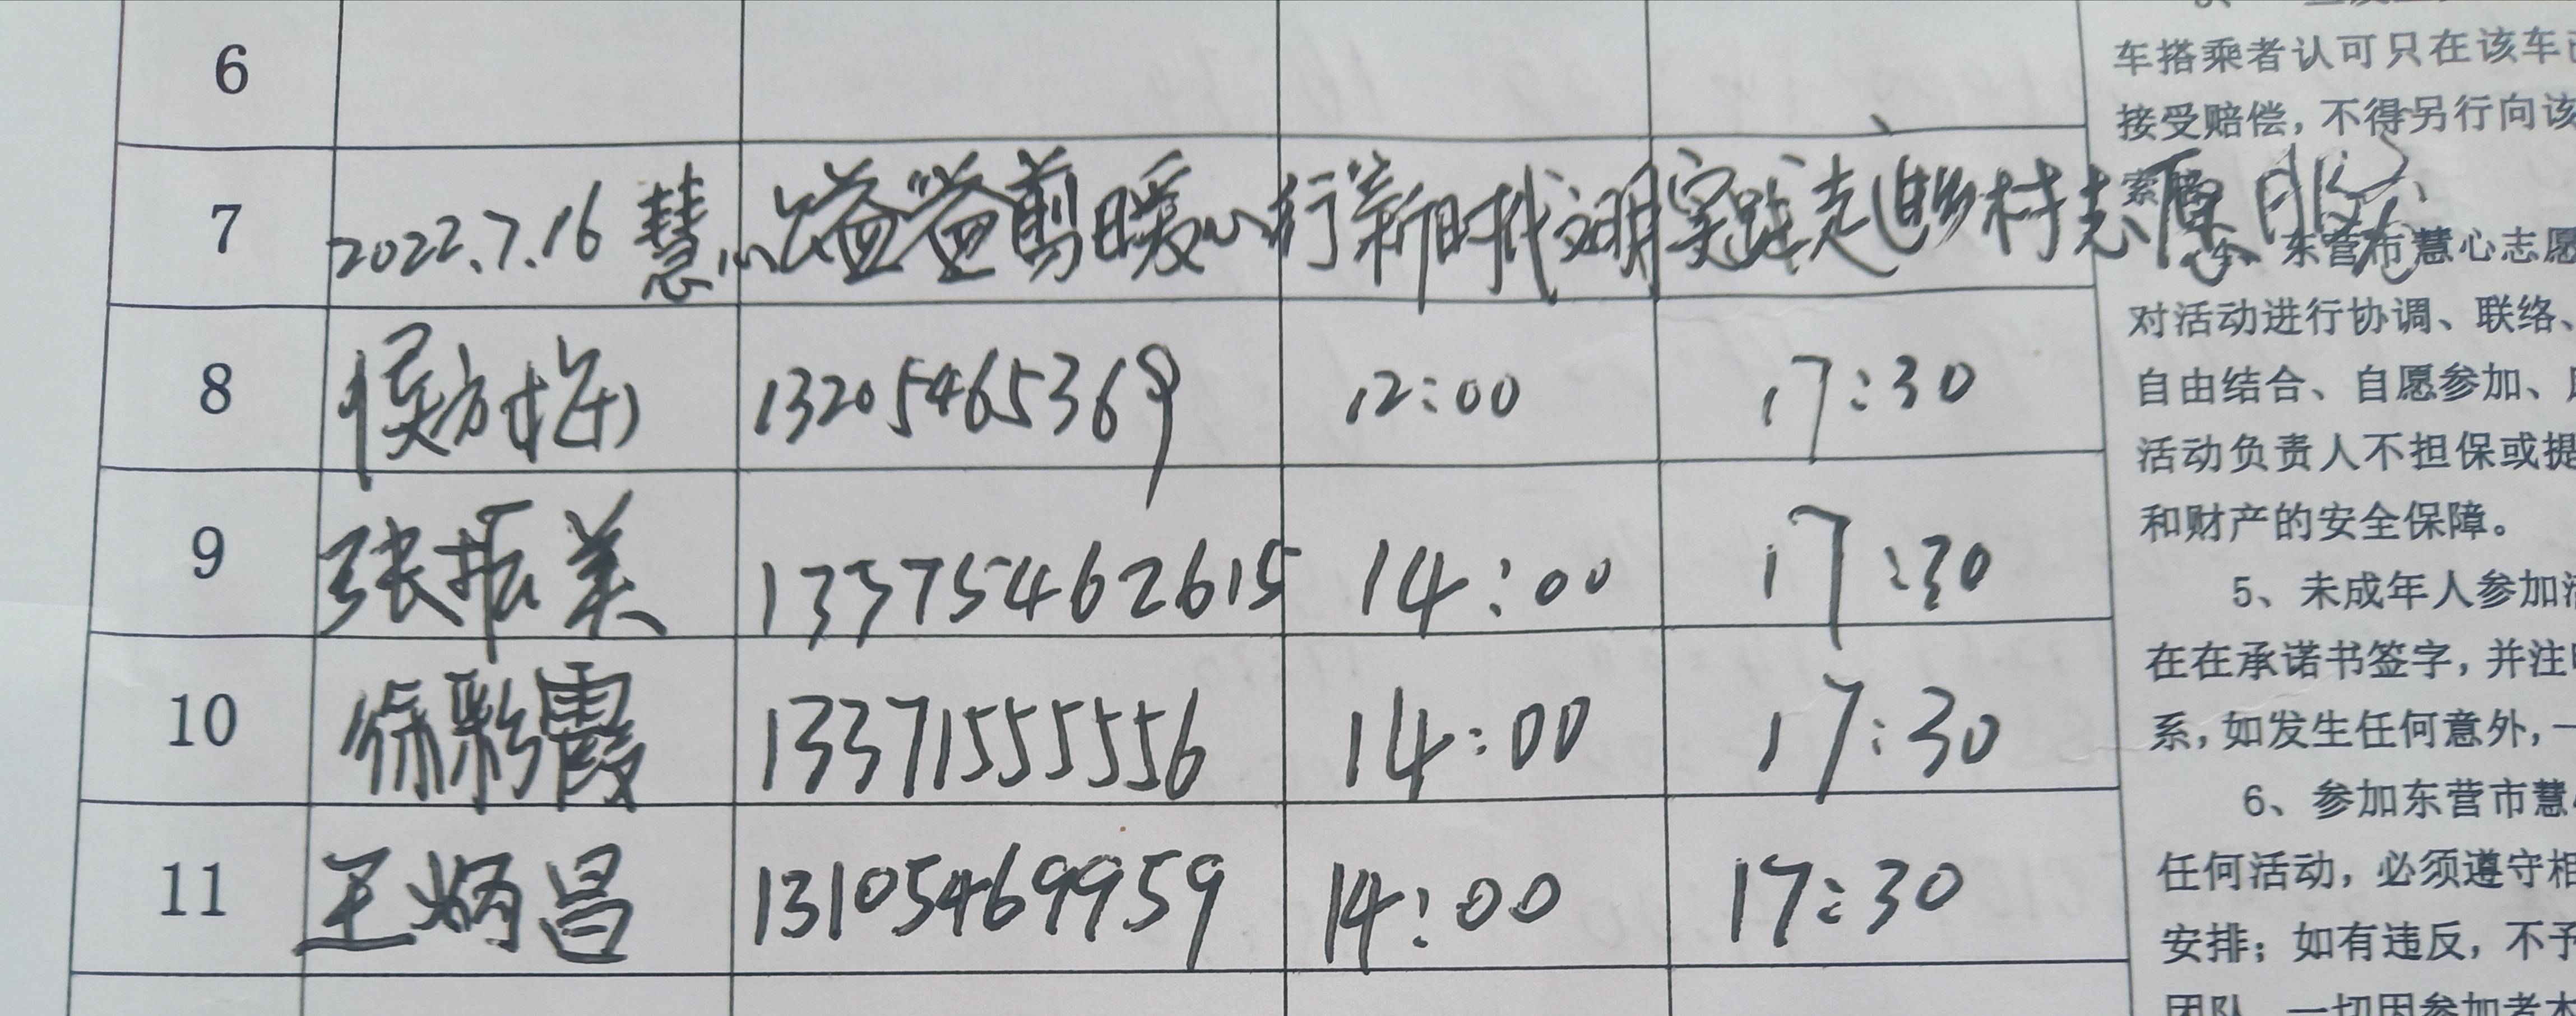 6
7 2022.7.16 慧心益益剪暖心行新时代文明实践走进乡村志愿服务
8 侯方梅 13205465369 12:00 17:30
9 张振美 13375462615 14:00 17:30
10 徐彩霞 13371555556 14:00 17:30
11 王炳昌 13105469959 14:00 17:30
车搭乘者认可只在该车
接受赔偿，不得另行向该
索
东营市慧心志愿
对活动进行协调、联络、
自由结合、自愿参加、
活动负责人不担保或提
和财产的安全保障。
5、未成年人参加
在在承诺书签字，并注
系，如发生任何意外，一
6、参加东营市慧
任何活动，必须遵守相
安排；如有违反，不予
团队，一切因参加者本